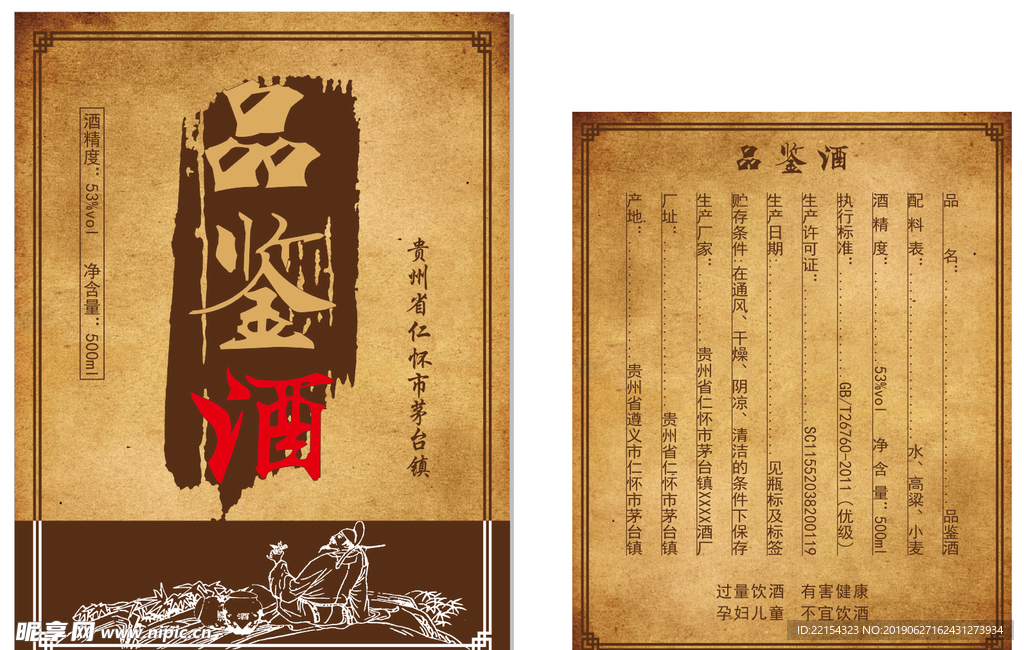 品鉴酒
酒精度：53%vol 净含量：500ml
贵州省仁怀市茅台镇
酒
昵享网 www.nipic.cn
品鉴酒
品 名：品鉴酒
配料表：水、高粱、小麦
酒精度：53%vol 净含量：500ml
执行标准：GB/T26760-2011（优级）
生产许可证：SC11552038200119
生产日期：见瓶标及标签
贮存条件：在通风、干燥、阴凉、清洁的条件下保存
生产厂家：贵州省仁怀市茅台镇XXXX酒厂
厂址：贵州省仁怀市茅台镇
产地：贵州省遵义市仁怀市茅台镇
过量饮酒 有害健康
孕妇儿童 不宜饮酒
ID:22154323 NO:20190627162431273934